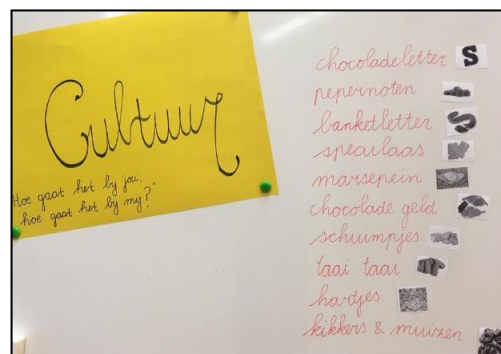 Cultuur
"Hoe gaat het bij jou,
hoe gaat het bij mij?"
chocoladeletter S
pepernoten
banketletter
speculaas
marsepein
chocolade geld
schuimpjes
taai taai
hartjes
kikkers & muizen